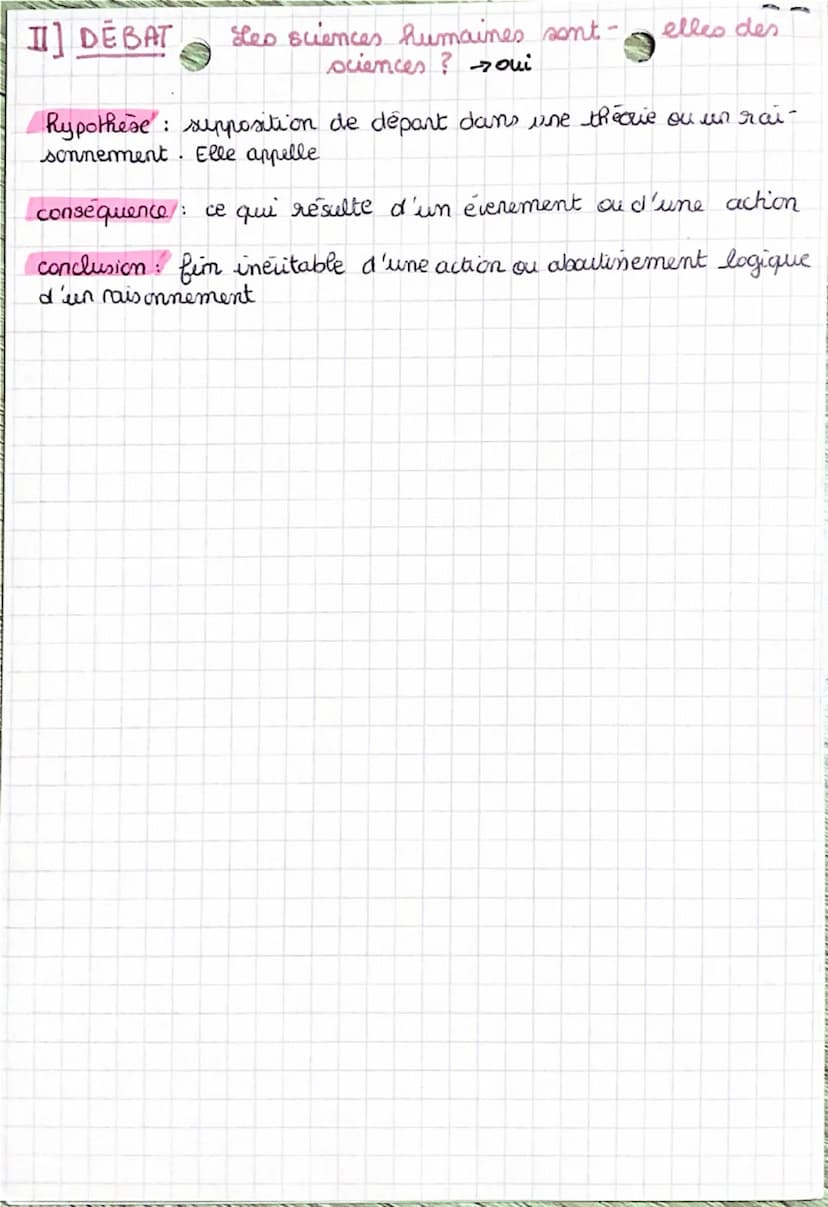 II] DÉBAT Les sciences humaines sont-elles des
sciences ? → oui
hypothèse : supposition de départ dans une théorie ou un rai-
sonnement. Elle appelle
conséquence : ce qui résulte d'un évenement ou d'une action
conclusion : fin inévitable d'une action ou aboutissement logique
d'un raisonnement